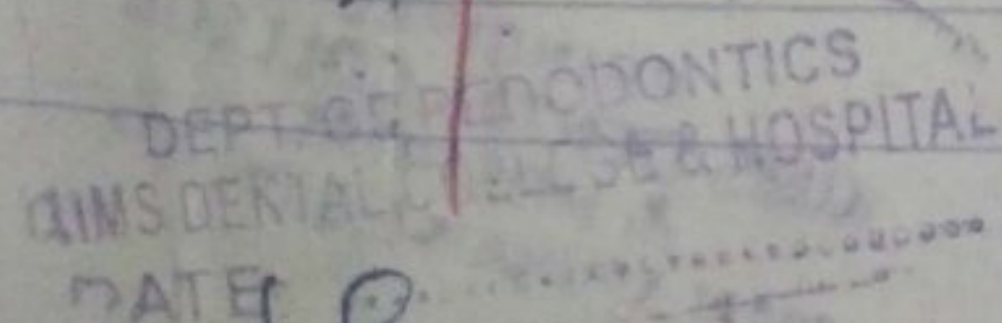 DEPT. OF PEDODONTICS
DENTAL COLLEGE & HOSPITAL
DATE